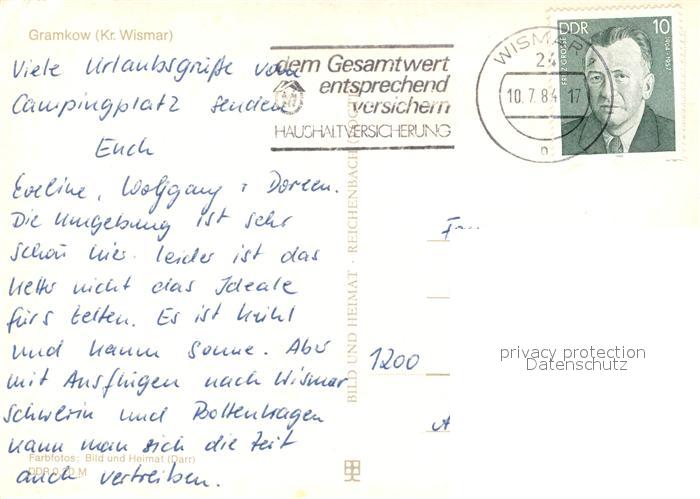 Gramkow (Kr. Wismar)
Viele Urlaubsgrüße vom
Campingplatz senden
Euch
Eveline, Wolfgang + Doreen.
Die Umgebung ist sehr
schön hier. Leider ist das
Wetter nicht das Ideale
fürs Zelten. Es ist kühl
und kaum Sonne. Aber
mit Ausflügen nach Wismar
Schwerin und Boltenhagen
kann man sich die Zeit
auch vertreiben.
Farbfotos: Bild und Heimat (Darr)
DDR 0,20 M
dem Gesamtwert
entsprechend
versichern
HAUSHALTVERSICHERUNG
WISMAR 1
24
10.7.84 17
DDR 10
FRITZ GROSSE
1904 - 1957
BILD UND HEIMAT · REICHENBACH (VOGTL)
1200
privacy protection
Datenschutz